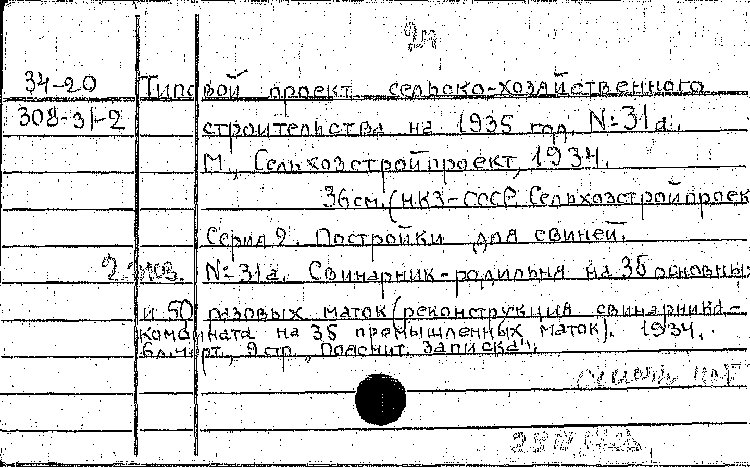 34-20 Типовой проект сельско-хозяйственного
308-31-2 строительства на 1935 год. №31а.
М., Сельхозстройпроект, 1934.
36см. (НКЗ-СССР. Сельхозстройпроек
Серия 9. Постройки для свиней.
2 экз. №31а. Свинарник-родильня на 35 основны
и 50 разовых маток (реконструкция свинарника-
комбината на 35 промышленных маток). 1934.
6л.черт., 9стр., Пояснит. записка".